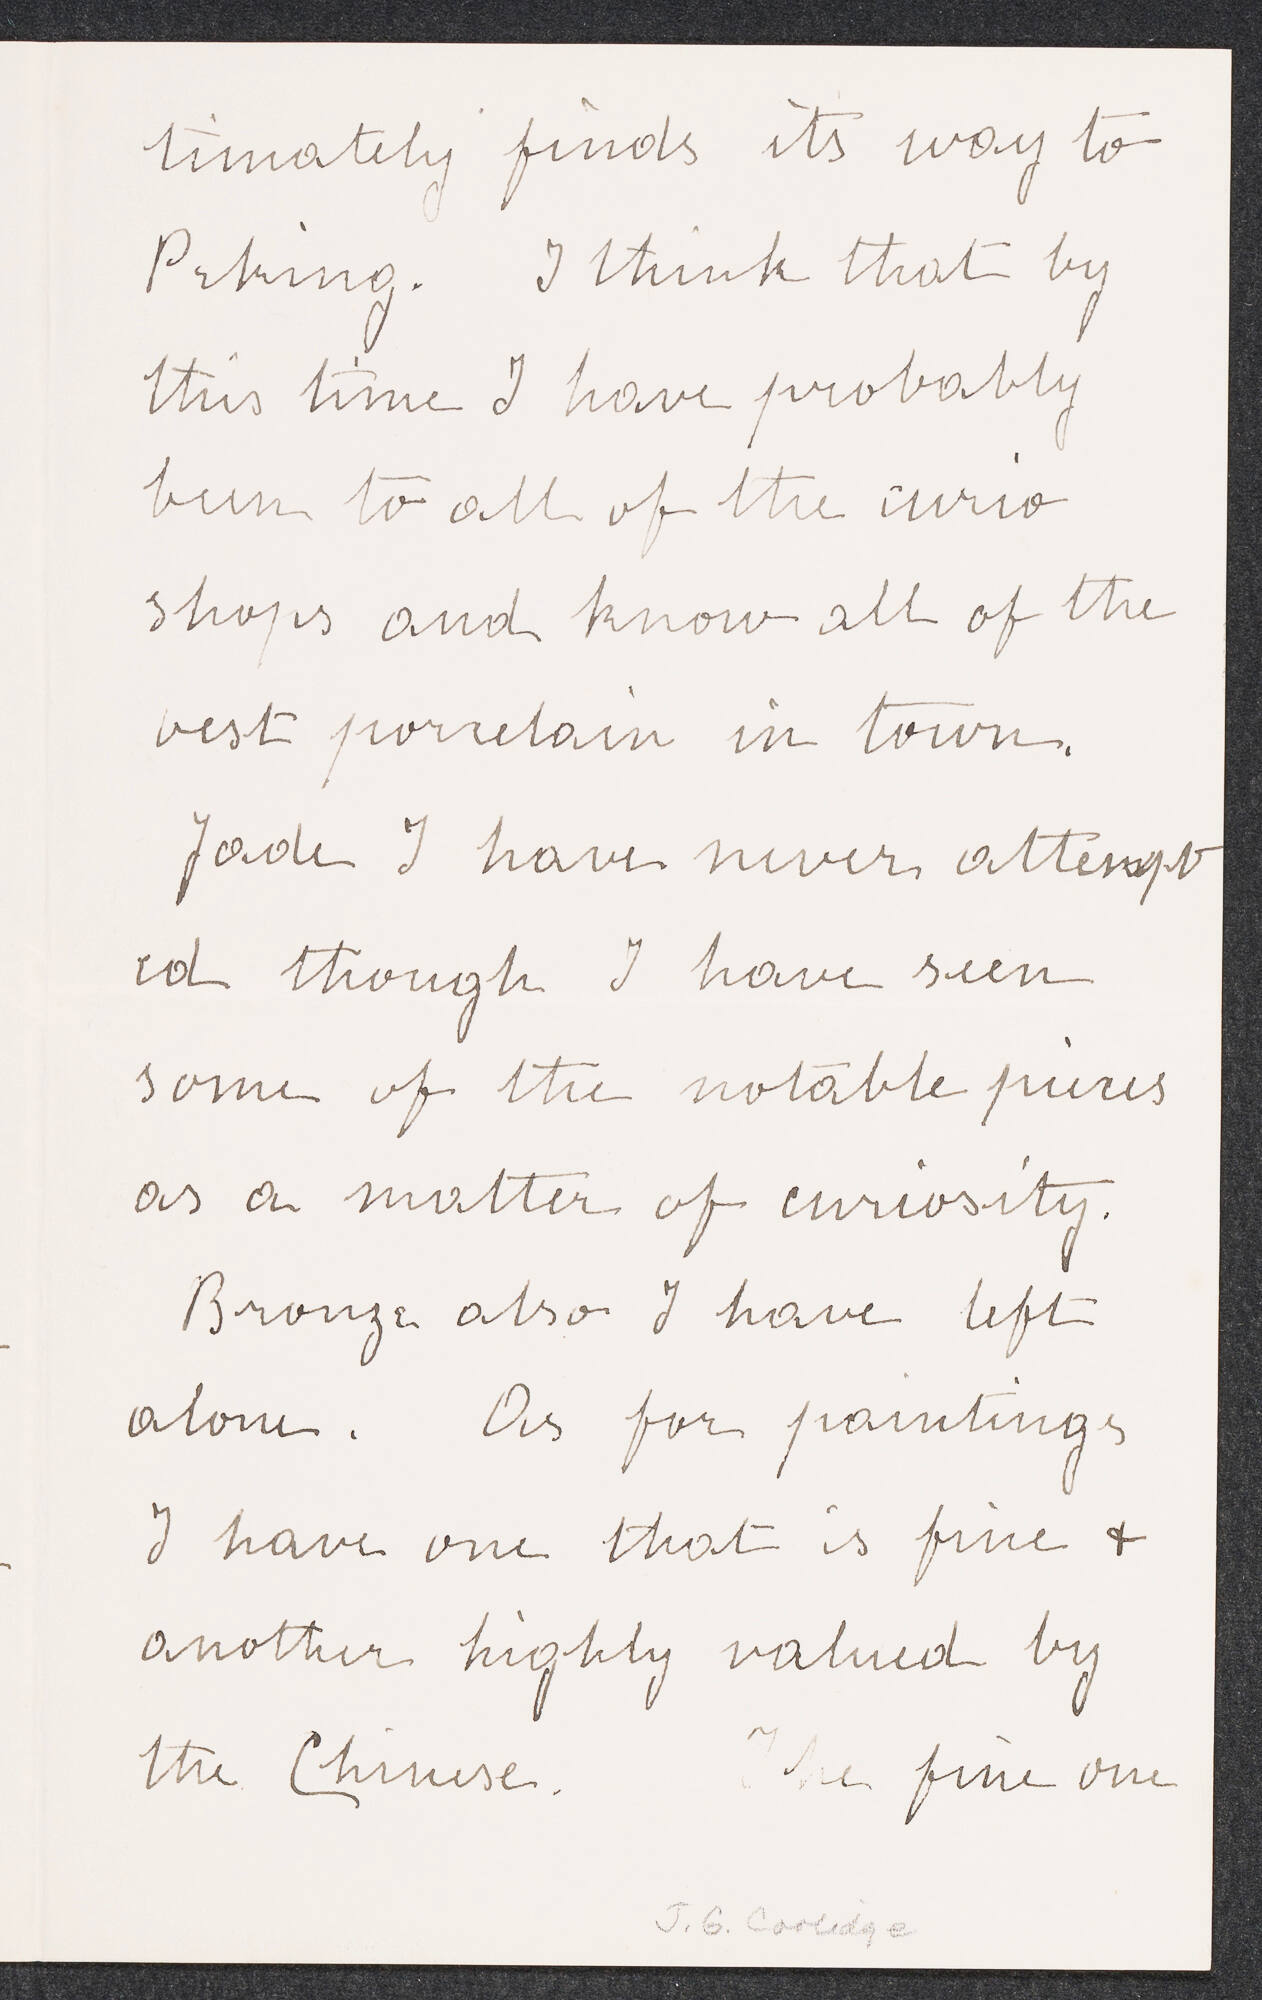 timately finds its way to
Peking. I think that by
this time I have probably
been to all of the curio
shops and know all of the
best porcelain in town.
Jade I have never attempt
ed though I have seen
some of the notable pieces
as a matter of curiosity.
Bronze also I have left
alone. As for paintings
I have one that is fine +
another highly valued by
the Chinese. The fine one
J. G. Coolidge